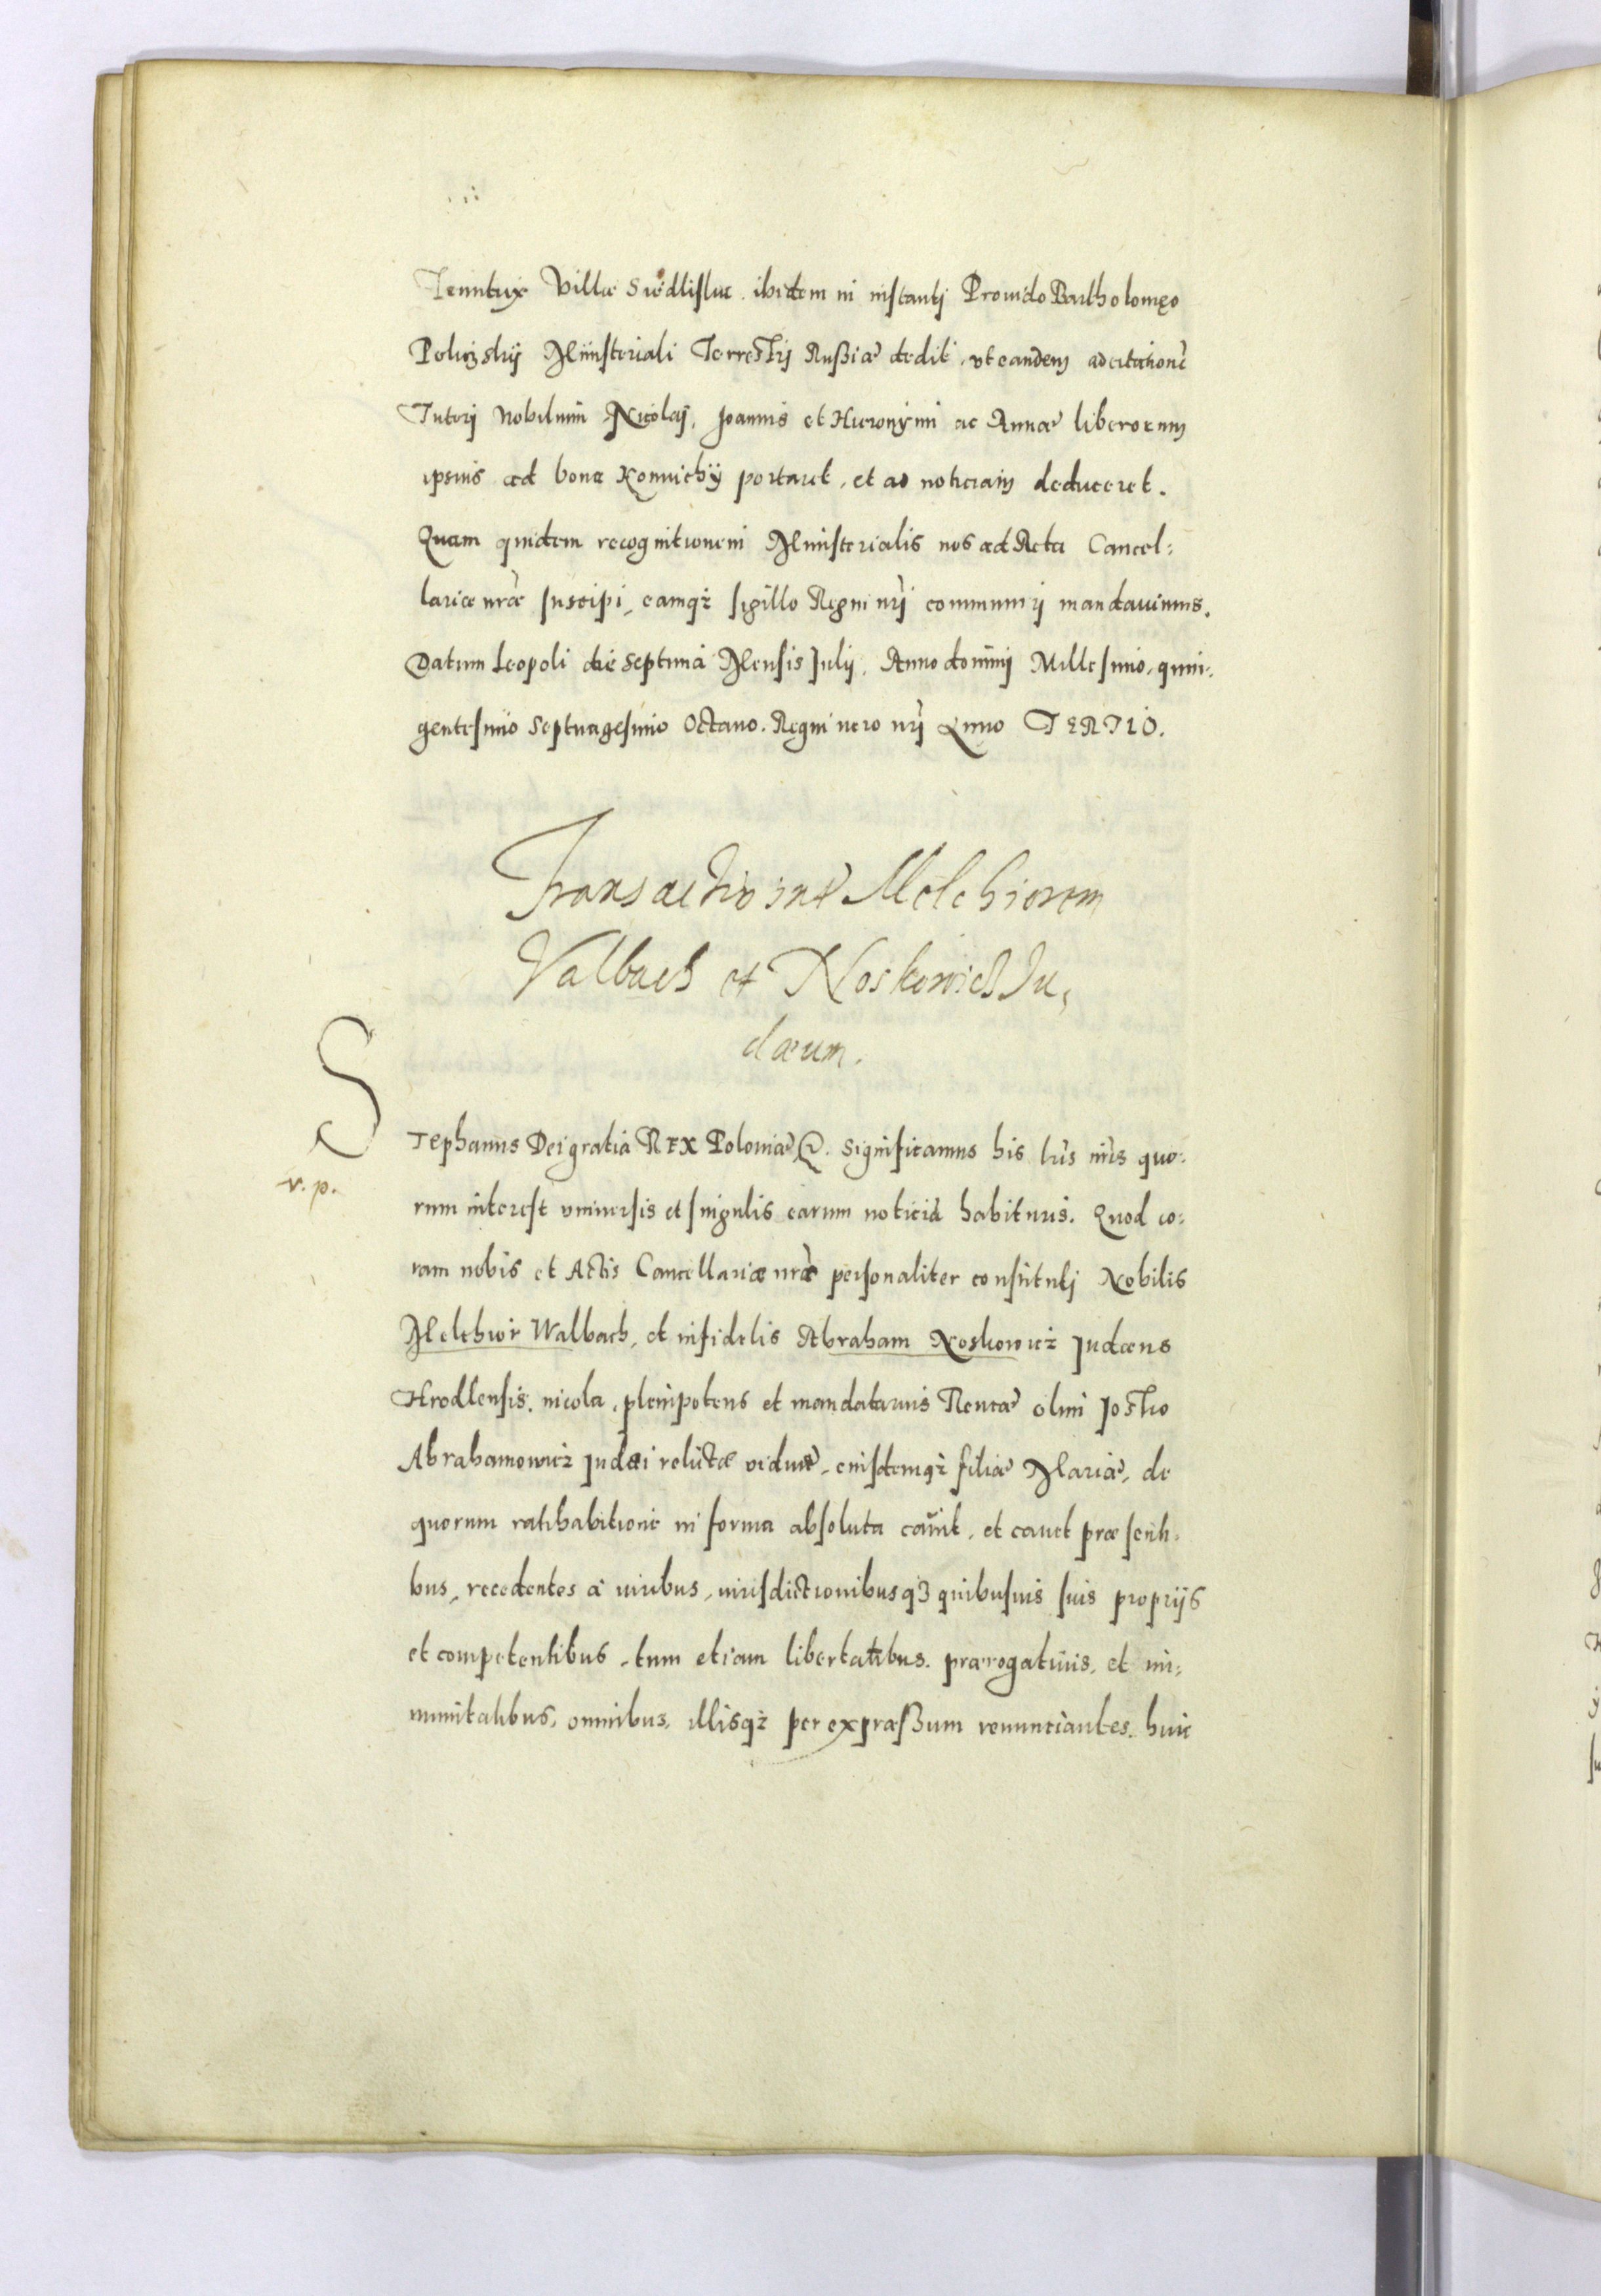 Tenutrix Villæ Siedliskæ ibidem in instanti Prouido Bartholomęo
Ministeriali Terrestrij Rußiæ dedit, vt eandem ad citationẽ
Tutorj Nobilium Nicolaj, Joannis et Hieronÿmi ac Annæ liberorum
ipsius ad bona portaret, et ad noticiam deduceret.
Quam quidem recognitionem Ministerialis nos ad Acta Cancel:
lariæ nr̃æ suscipi, eamqz̃ sigillo Regni nr̃j communirj mandauimus.
Datum Leopoli die Septima Mensis Julij, Anno dominj Millesimo, quin:
gentesimo Septuagesimo Octauo. Regni uero nr̃j Anno TERTIO.
Transactio int̃ Melchiorem
Valbach et Noskowicz Ju,
dæum.
S
v. p.
Tephanus Dei gratia REX Poloniæ &. Significamus his lr̃is nr̃is quo:
rum interest vniuersis et singulis earum noticiã habituris. Quod co:
ram nobis et Actis Cancellariæ nr̃æ personaliter constitutj Nobilis
Melchior Walbach, et infidelis Abraham Noskowicz Judæus
Hrodlensis, incola, plenipotens et mandatarius olim Josko
Abrahamowicz Judæi relictæ viduæ, eiusdemqz̃ filiæ Mariæ, de
quorum ratihabitione in forma absoluta cauit, et cauet præsenti:
bus, recedentes à iuribus, iurisdictionibusqz quibusuis suis proprijs
et competentibus, tum etiam libertatibus, prærogatiuis, et im:
munitatibus, omnibus, illisqz̃ per expræßum renunciantes, huic